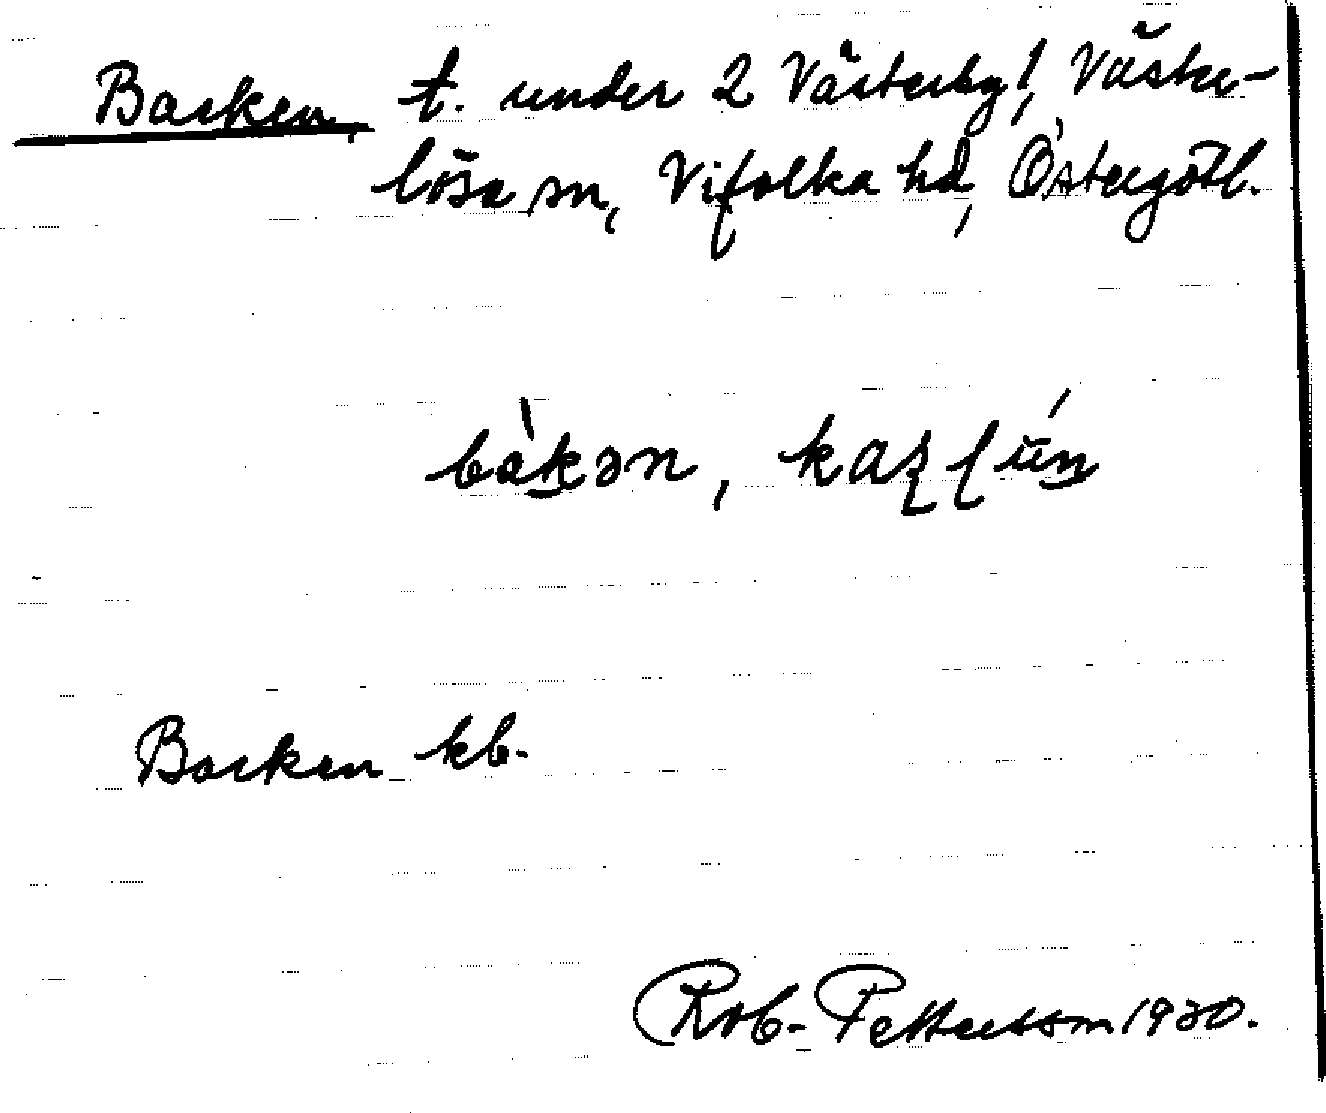 Backen, t. under 2 Västerby, Väske-
lösa sn, Vifolka hd, Östergötl.
bàkən,
Backen kb.
Rob. Pettersson 1930.